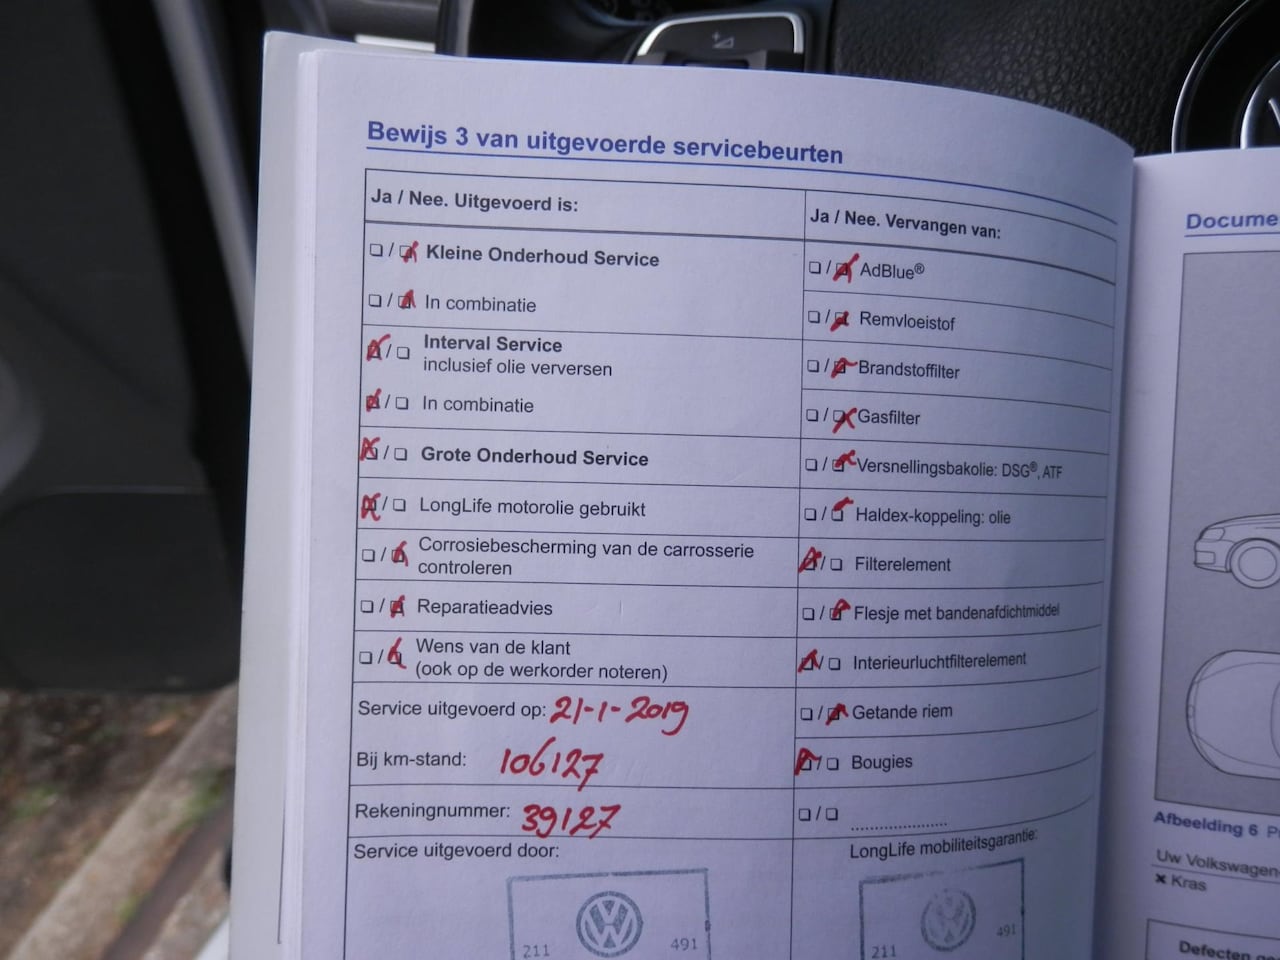 Bewijs 3 van uitgevoerde servicebeurten
Ja / Nee. Uitgevoerd is:
❏ / ❏ Kleine Onderhoud Service
❏ / ❏ In combinatie
❏ / ❏ Interval Service
inclusief olie verversen
❏ / ❏ In combinatie
❏ / ❏ Grote Onderhoud Service
❏ / ❏ LongLife motorolie gebruikt
❏ / ❏ Corrosiebescherming van de carrosserie
controleren
❏ / ❏ Reparatieadvies
❏ / ❏ Wens van de klant
(ook op de werkorder noteren)
Service uitgevoerd op: 21-1-2019
Bij km-stand: 106127
Rekeningnummer: 39127
Service uitgevoerd door:
211 491
Ja / Nee. Vervangen van:
❏ / ❏ AdBlue®
❏ / ❏ Remvloeistof
❏ / ❏ Brandstoffilter
❏ / ❏ Gasfilter
❏ / ❏ Versnellingsbakolie: DSG®, ATF
❏ / ❏ Haldex-koppeling: olie
❏ / ❏ Filterelement
❏ / ❏ Flesje met bandenafdichtmiddel
❏ / ❏ Interieurluchtfilterelement
❏ / ❏ Getande riem
❏ / ❏ Bougies
❏ / ❏ ....................
LongLife mobiliteitsgarantie:
211 491
Docume
Afbeelding 6
Uw Volkswagen-
✖ Kras
Defecten